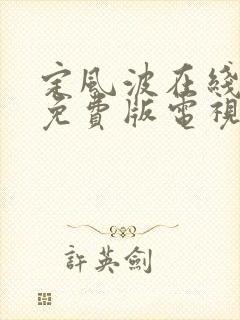 定風波在綫
免費版電視
許英劍